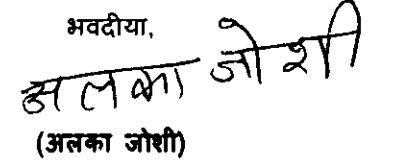 भवदीया,
अलका जोशी
(अलका जोशी)